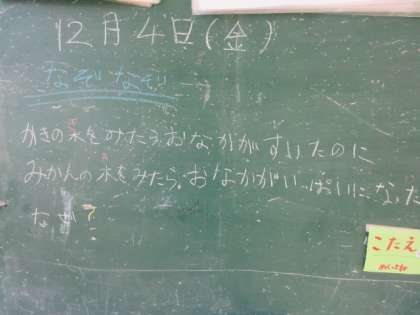 12月4日(金)
なぞなぞ
かきの木をみたら、おなかがすいたのに
みかんの木をみたら、おなかがいっぱいになった
なぜ?
こたえ